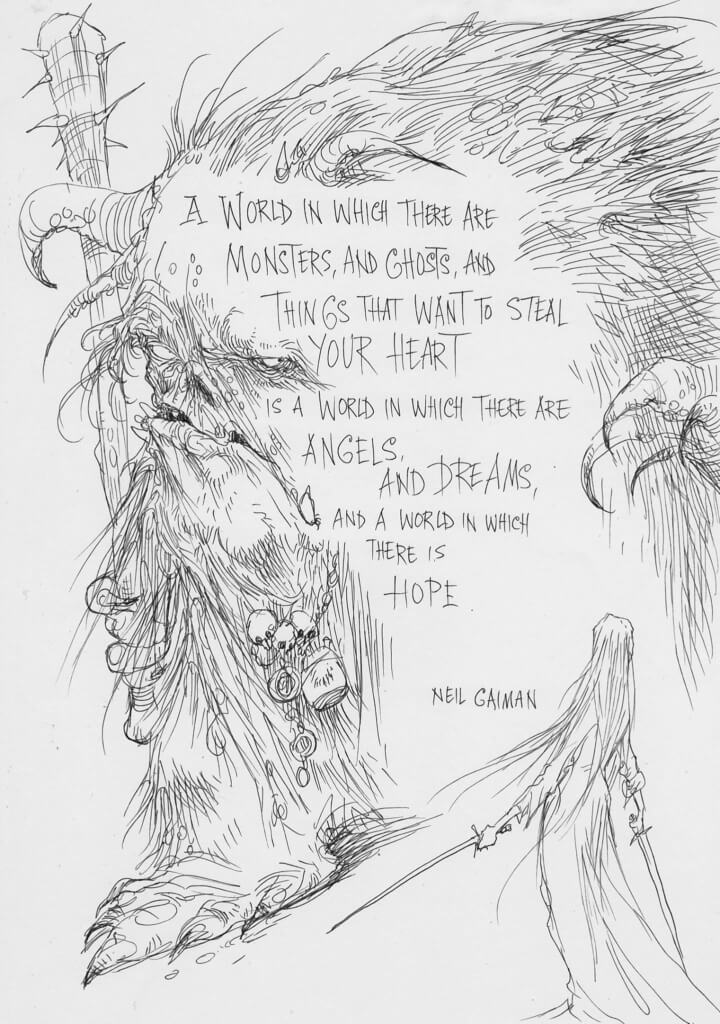 A WORLD IN WHICH THERE ARE
MONSTERS, AND GHOSTS, AND
THINGS THAT WANT TO STEAL
YOUR HEART
IS A WORLD IN WHICH THERE ARE
ANGELS,
AND DREAMS,
AND A WORLD IN WHICH
THERE IS
HOPE
NEIL GAIMAN